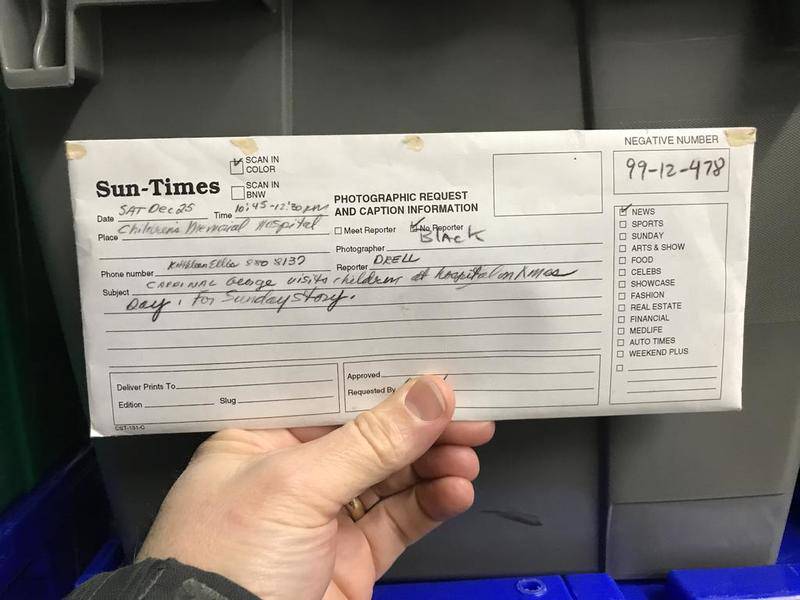 NEGATIVE NUMBER
99-12-478
SCAN IN COLOR
SCAN IN BNW
Sun-Times
PHOTOGRAPHIC REQUEST
AND CAPTION INFORMATION
Date SAT Dec 25 Time 10:45-12:30 PM
Meet Reporter No Reporter
Place Children's Memorial Hospital
Photographer Black
Phone number Kathleen Ellis 880 8137 Reporter DRELL
Subject CARDINAL George visits children at hospital on Xmas
Day, for Sunday story.
Deliver Prints To
Edition Slug
Approved
Requested By
CST-131-C
NEWS
SPORTS
SUNDAY
ARTS & SHOW
FOOD
CELEBS
SHOWCASE
FASHION
REAL ESTATE
FINANCIAL
MEDLIFE
AUTO TIMES
WEEKEND PLUS